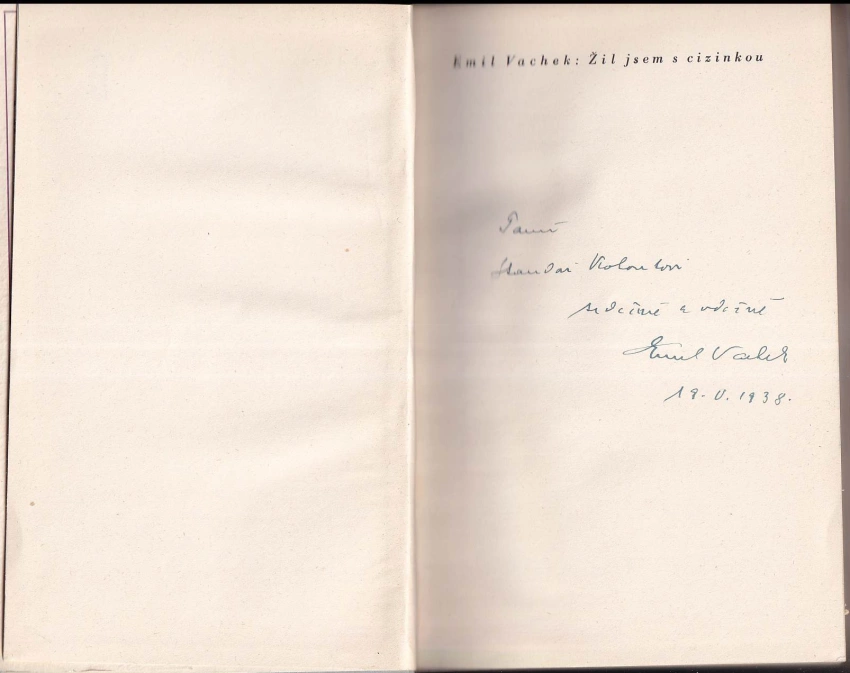 Emil Vachek: Žil jsem s cizinkou
Panu
srdečně a vděčně
Emil Vachek
19. V. 1938.